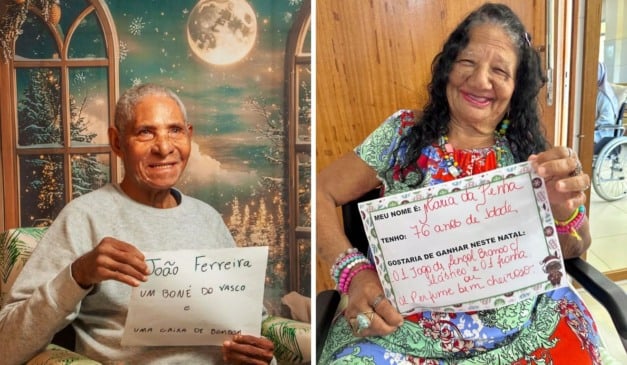 João Ferreira
UM BONÉ DO VASCO
e
UMA CAIXA DE BOMBOM
MEU NOME É: Maria da Penha
TENHO: 76 anos de idade,
GOSTARIA DE GANHAR NESTE NATAL:
01 Jogo de lençol Branco c/
elástico e 01 fronha
ou
01 Perfume bem cheiroso.